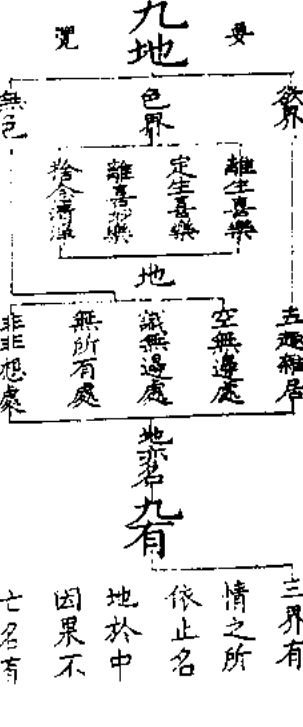 九地
要覽
欲界
色界
無色
離生喜樂
定生喜樂
離喜妙樂
捨念清淨
地
五趣雜居
空無邊處
識無邊處
無所有處
非非想處
地亦名
九有
三界有
情之所
依止名
地於中
因果不
亡名有